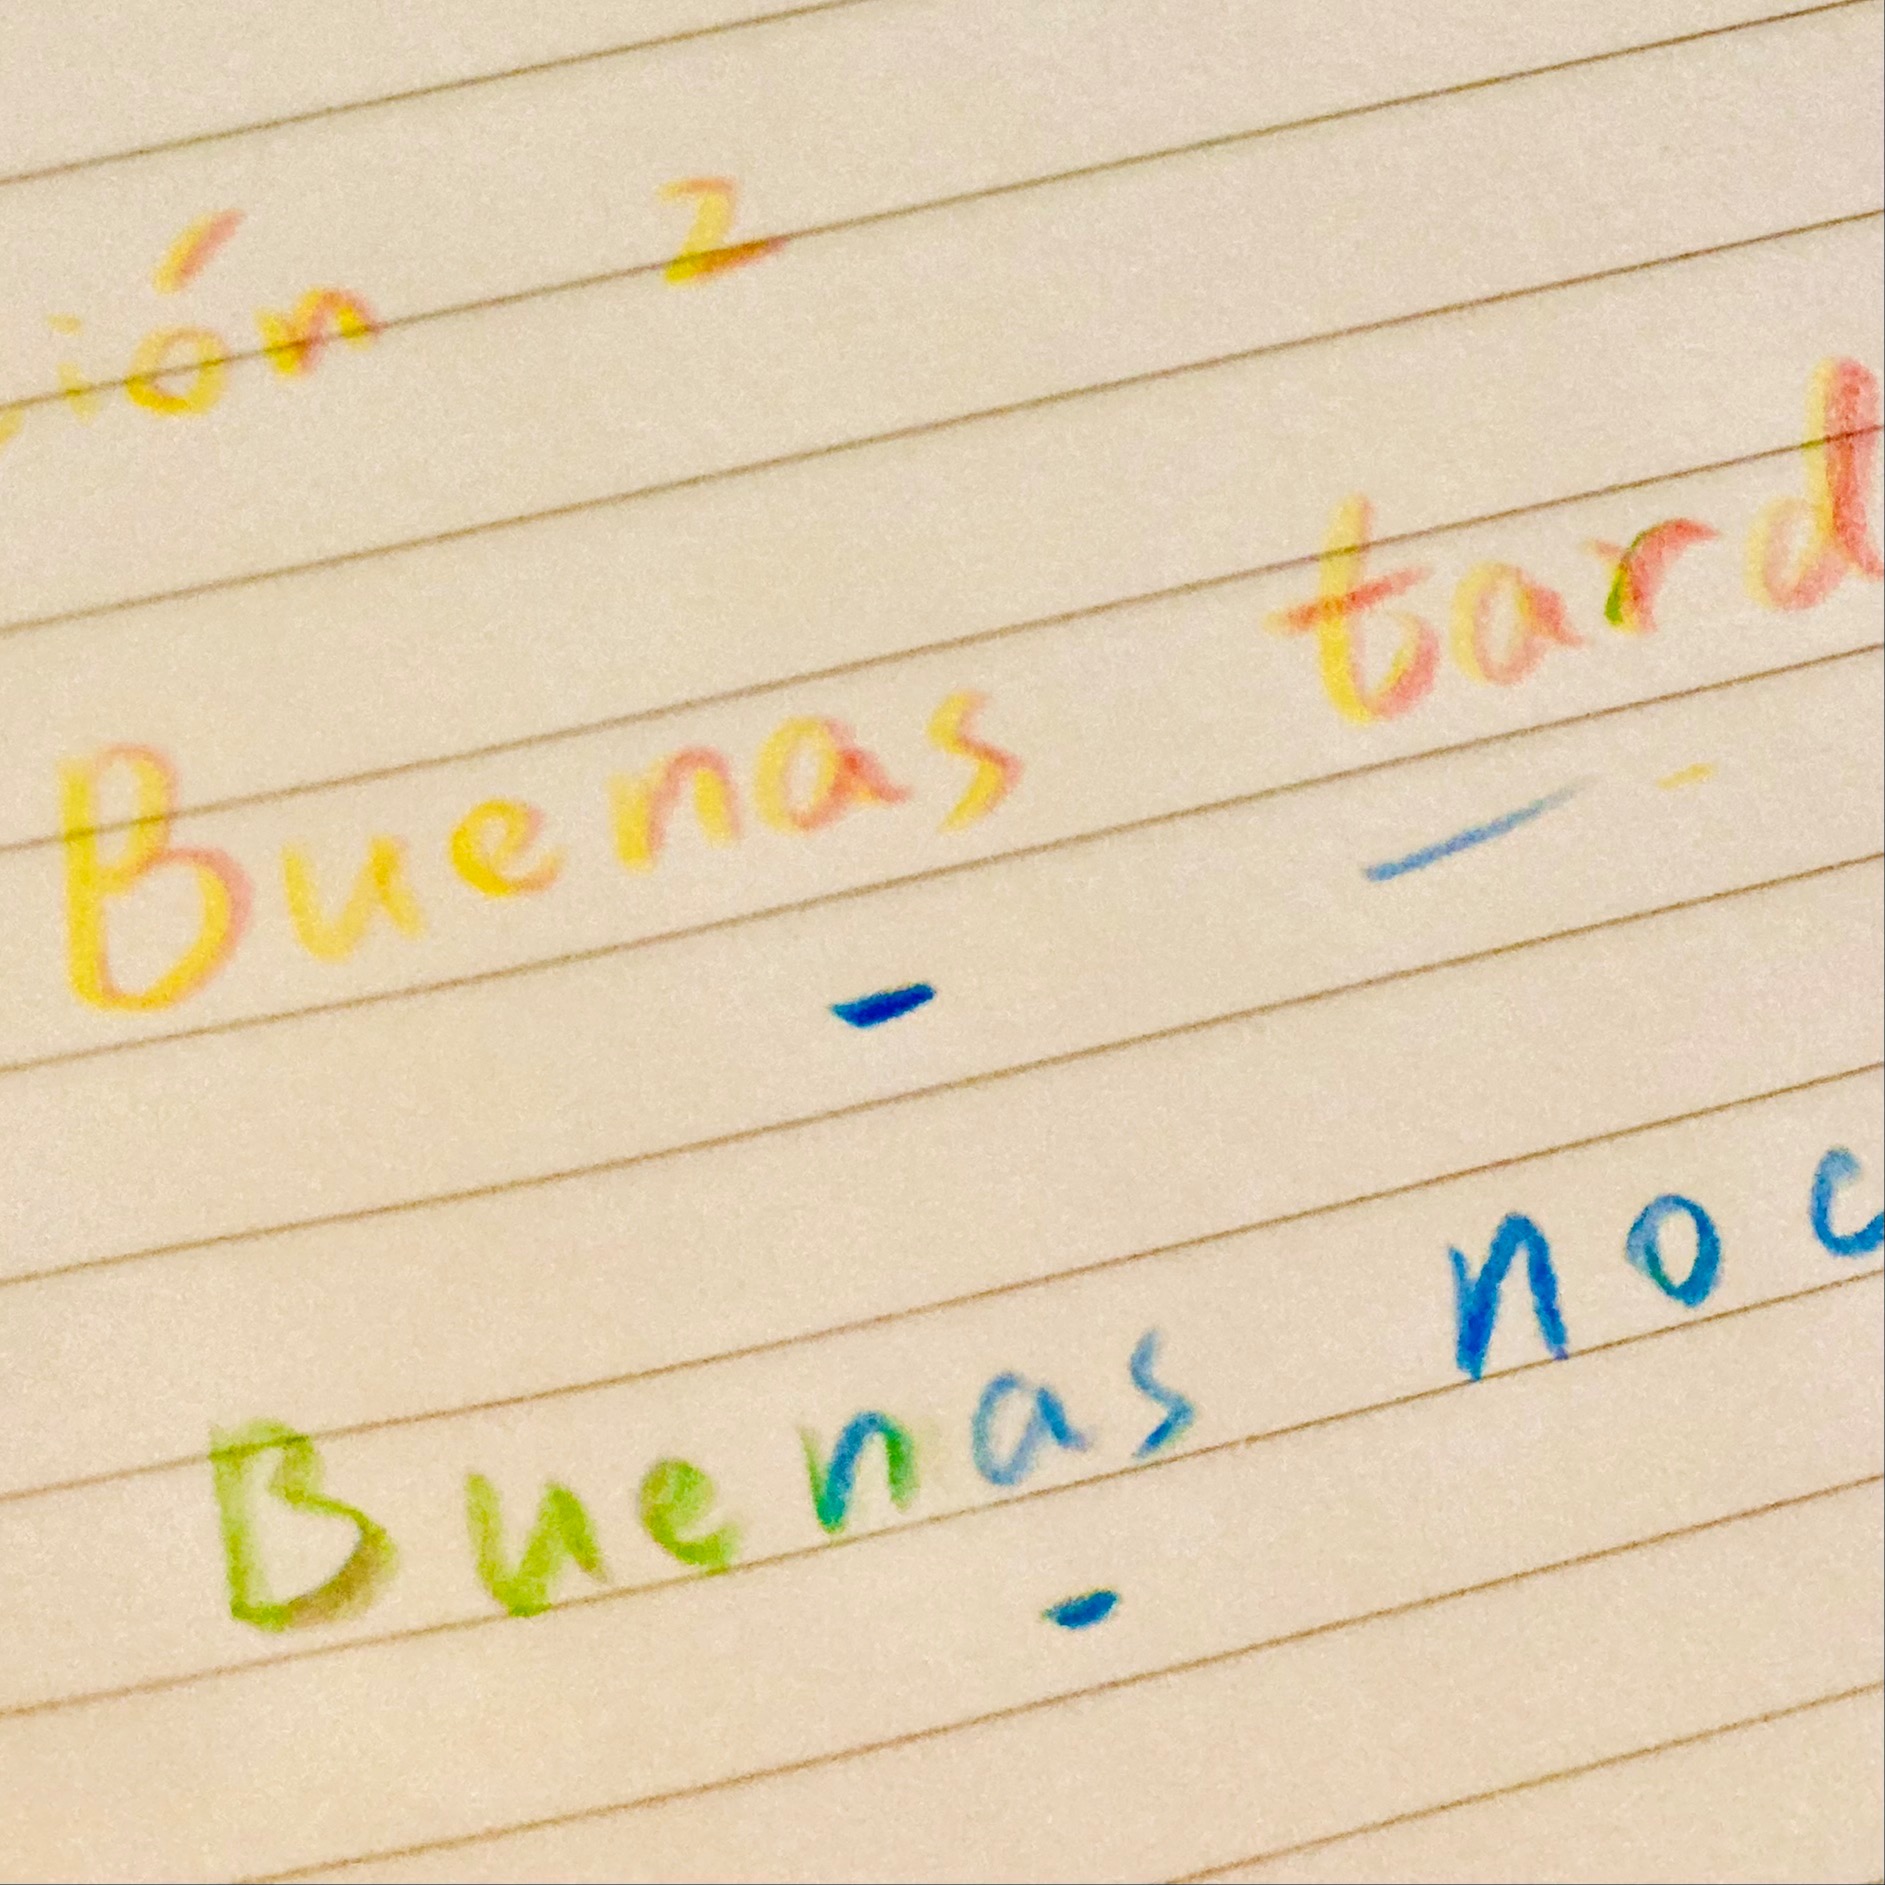 ión 2
Buenas tard
Buenas noc